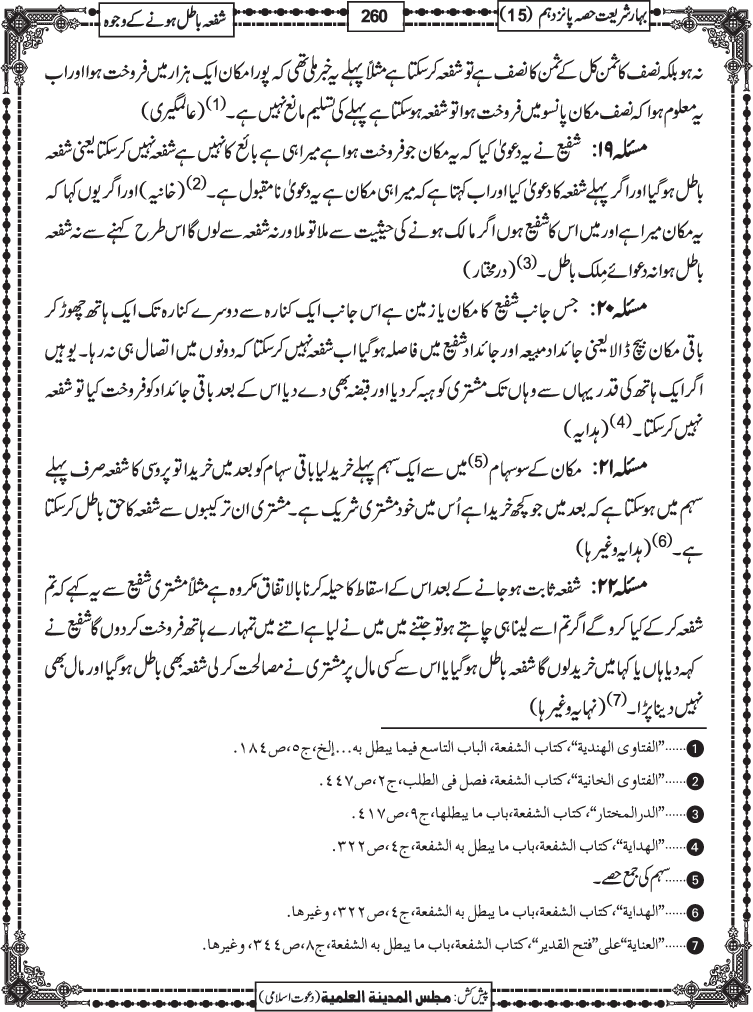 بہارِ شریعت حصہ پانزدہم (15)
260
شفعہ باطل ہونے کے وجوہ
نہ ہو بلکہ نصف کا ثمن کل کے ثمن کا نصف ہے تو شفعہ کرسکتا ہے مثلاً پہلے یہ خبر ملی تھی کہ پورا مکان ایک ہزار میں فروخت ہوا اور اب
یہ معلوم ہوا کہ نصف مکان پانسو میں فروخت ہوا تو شفعہ ہوسکتا ہے پہلے کی تسلیم مانع نہیں ہے۔(1) (عالمگیری)
مسئلہ ۱۹: شفیع نے یہ دعویٰ کیا کہ یہ مکان جو فروخت ہوا ہے میرا ہی ہے بائع کا نہیں ہے شفعہ نہیں کرسکتا یعنی شفعہ
باطل ہوگیا اور اگر پہلے شفعہ کا دعویٰ کیا اور اب کہتا ہے کہ میرا ہی مکان ہے یہ دعویٰ نامقبول ہے۔(2) (خانیہ) اور اگر یوں کہا کہ
یہ مکان میرا ہے اور میں اس کا شفیع ہوں اگر مالک ہونے کی حیثیت سے ملا تو ملا ورنہ شفعہ سے لوں گا اس طرح کہنے سے نہ شفعہ
باطل ہوا نہ دعوائے مِلک باطل۔(3) (درمختار)
مسئلہ ۲۰: جس جانب شفیع کا مکان یا زمین ہے اس جانب ایک کنارہ سے دوسرے کنارہ تک ایک ہاتھ چھوڑ کر
باقی مکان بیچ ڈالا یعنی جائداد مبیعہ اور جائداد شفیع میں فاصلہ ہوگیا اب شفعہ نہیں کرسکتا کہ دونوں میں اتصال ہی نہ رہا۔ یوہیں
اگر ایک ہاتھ کی قدر یہاں سے وہاں تک مشتری کو ہبہ کر دیا اور قبضہ بھی دے دیا اس کے بعد باقی جائداد کو فروخت کیا تو شفعہ
نہیں کرسکتا۔(4) (ہدایہ)
مسئلہ ۲۱: مکان کے سو سہام(5) میں سے ایک سہم پہلے خرید لیا باقی سہام کو بعد میں خریدا تو پروسی کا شفعہ صرف پہلے
سہم میں ہوسکتا ہے کہ بعد میں جو کچھ خریدا ہے اُس میں خود مشتری شریک ہے۔ مشتری ان ترکیبوں سے شفعہ کا حق باطل کرسکتا
ہے۔(6) (ہدایہ وغیرہا)
مسئلہ ۲۲: شفعہ ثابت ہوجانے کے بعد اس کے اسقاط کا حیلہ کرنا بالاتفاق مکروہ ہے مثلاً مشتری شفیع سے یہ کہے کہ تم
شفعہ کرکے کیا کرو گے اگر تم اسے لینا ہی چاہتے ہو تو جتنے میں میں نے لیا ہے اتنے میں تمہارے ہاتھ فروخت کردوں گا شفیع نے
کہہ دیا ہاں یا کہا میں خرید لوں گا شفعہ باطل ہوگیا یا اس سے کسی مال پر مشتری نے مصالحت کر لی شفعہ بھی باطل ہوگیا اور مال بھی
نہیں دینا پڑا۔(7) (نہایہ وغیرہا)
1 ......"الفتاوی الھندیة"، کتاب الشفعة، الباب التاسع فیما یبطل به...إلخ،ج۵،ص۱۸٤.
2 ......"الفتاوی الخانیة"، کتاب الشفعة، فصل فی الطلب،ج۲،ص٤٤۷.
3 ......"الدرالمختار"، کتاب الشفعة،باب ما یبطلھا،ج۹،ص٤۱۷.
4 ......"الھدایة"، کتاب الشفعة،باب ما یبطل به الشفعة،ج٤،ص۳۲۲.
5 ......سہم کی جمع حصے۔
6 ......"الھدایة"، کتاب الشفعة،باب ما یبطل به الشفعة،ج٤،ص۳۲۲، وغیرھا.
7 ......"العنایة"علی"فتح القدیر"، کتاب الشفعة،باب ما یبطل به الشفعة،ج۸،ص۳٤٤، وغیرھا.
پیش کش: مجلس المدینة العلمیة (دعوت اسلامی)